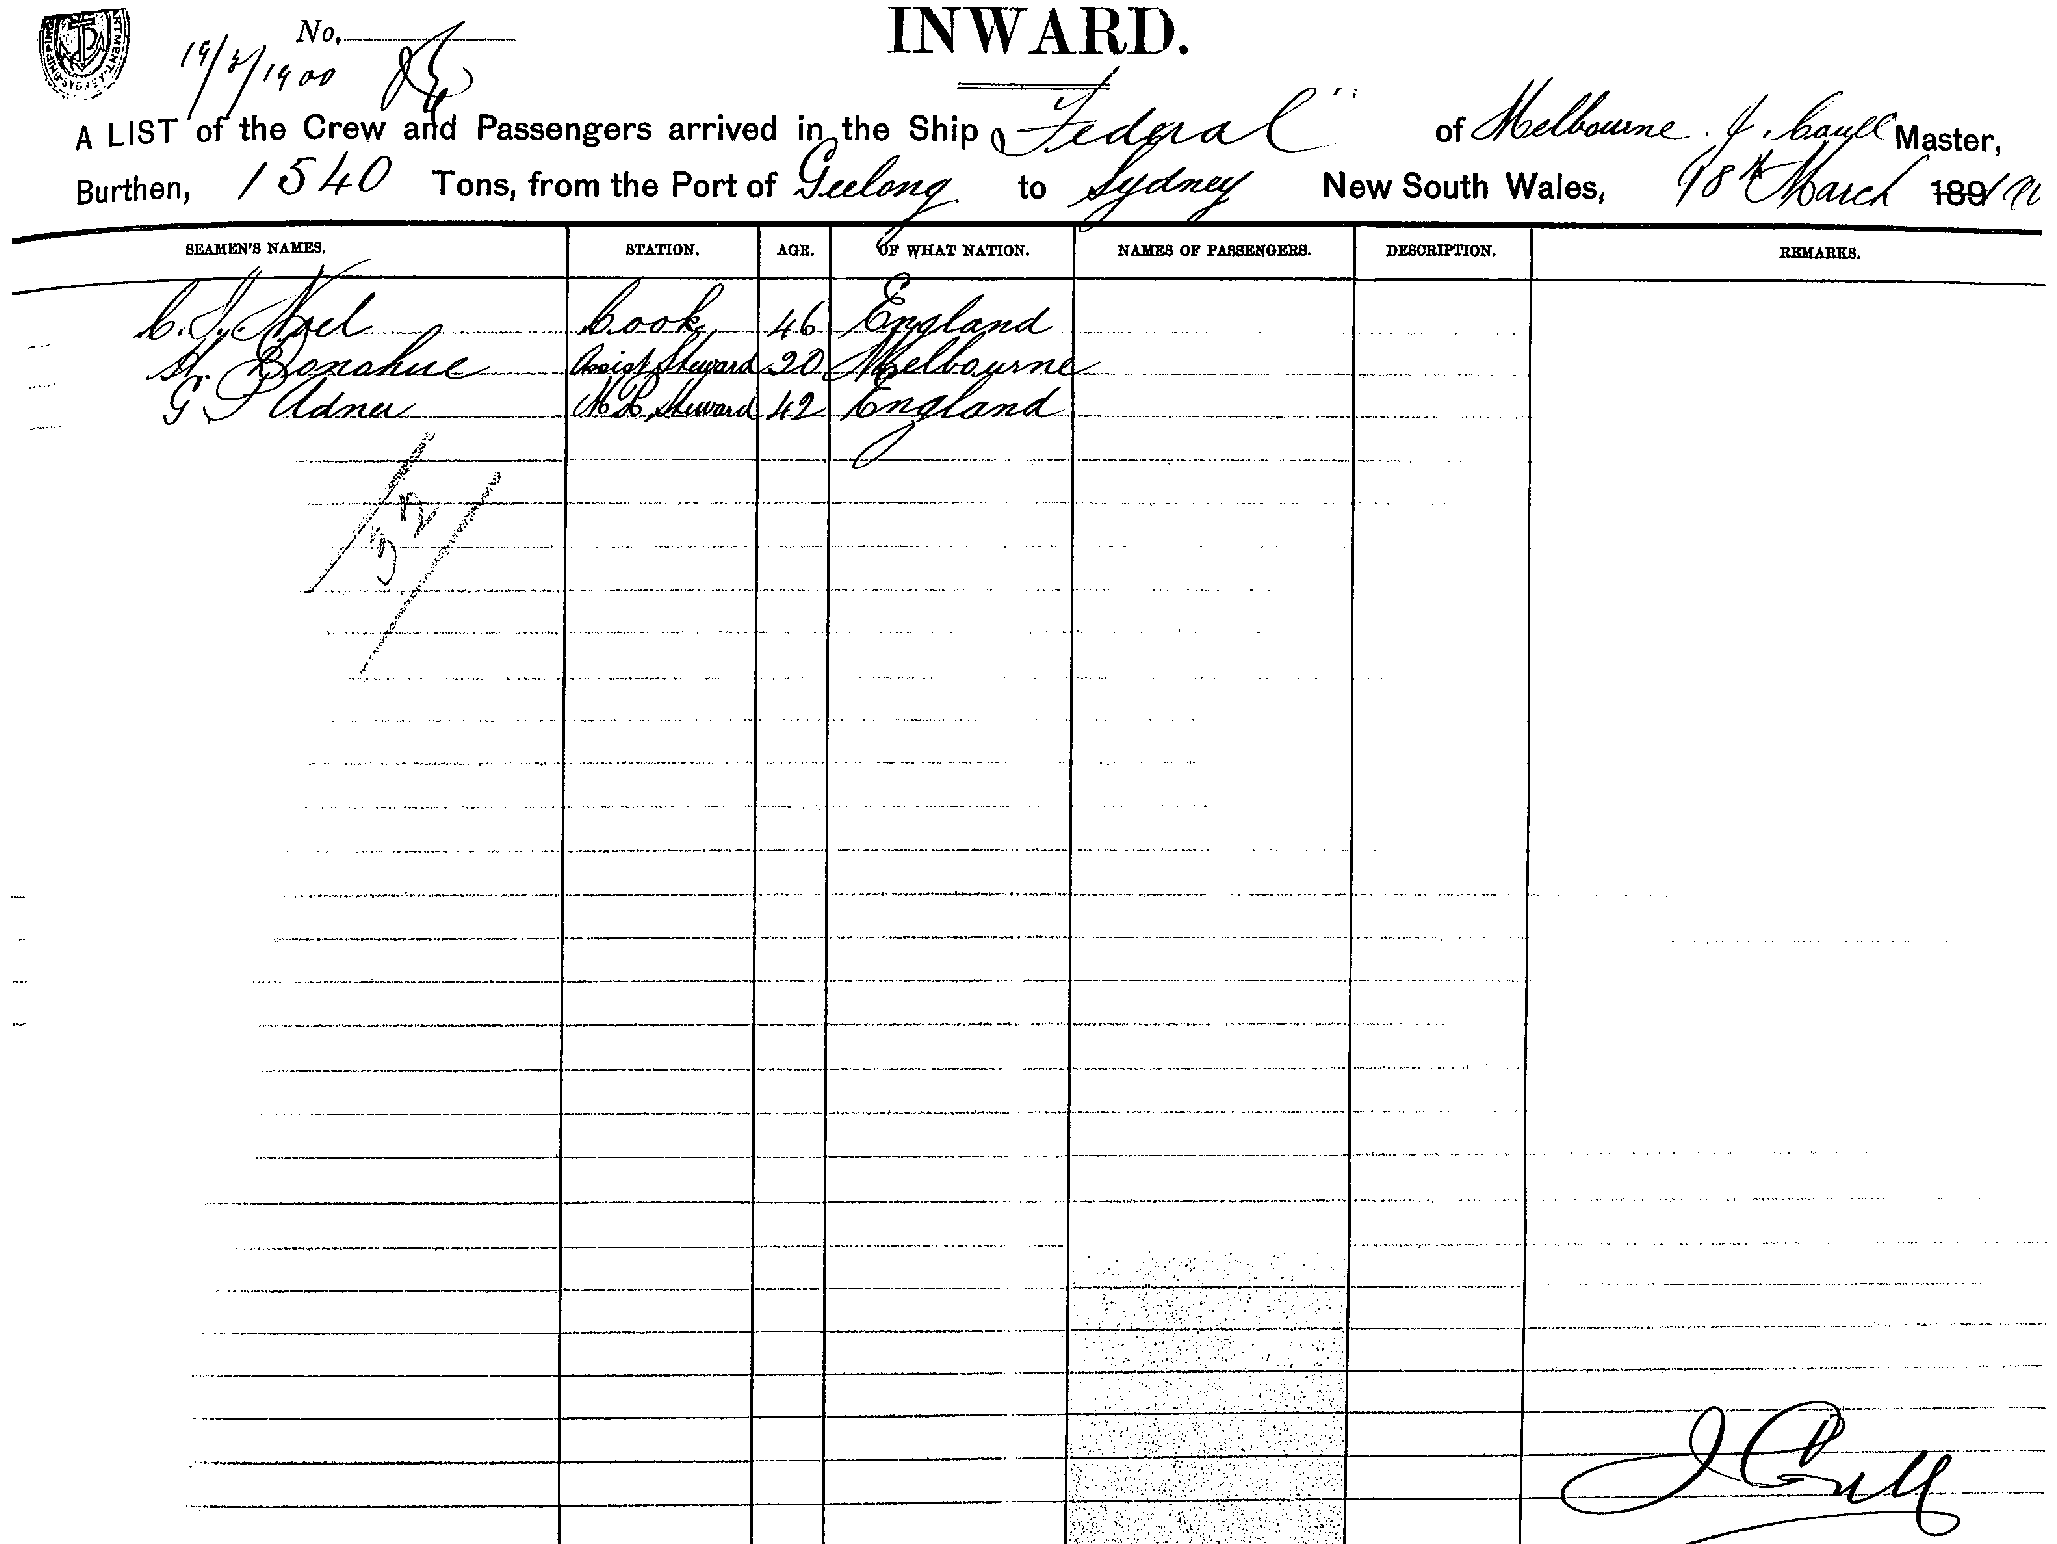 INWARD.
No.
19/3/1900
A LIST of the Crew and Passengers arrived in the Ship Federal of Melbourne. J. Caull Master,
Burthen, 1540 Tons, from the Port of Geelong to Sydney New South Wales, 18th March 189
SEAMEN'S NAMES. STATION. AGE. OF WHAT NATION. NAMES OF PASSENGERS. DESCRIPTION. REMARKS.
C. Noel Cook 46 England
Donahue Assist Steward 20 Melbourne
G Adner M R Steward 42 England
32